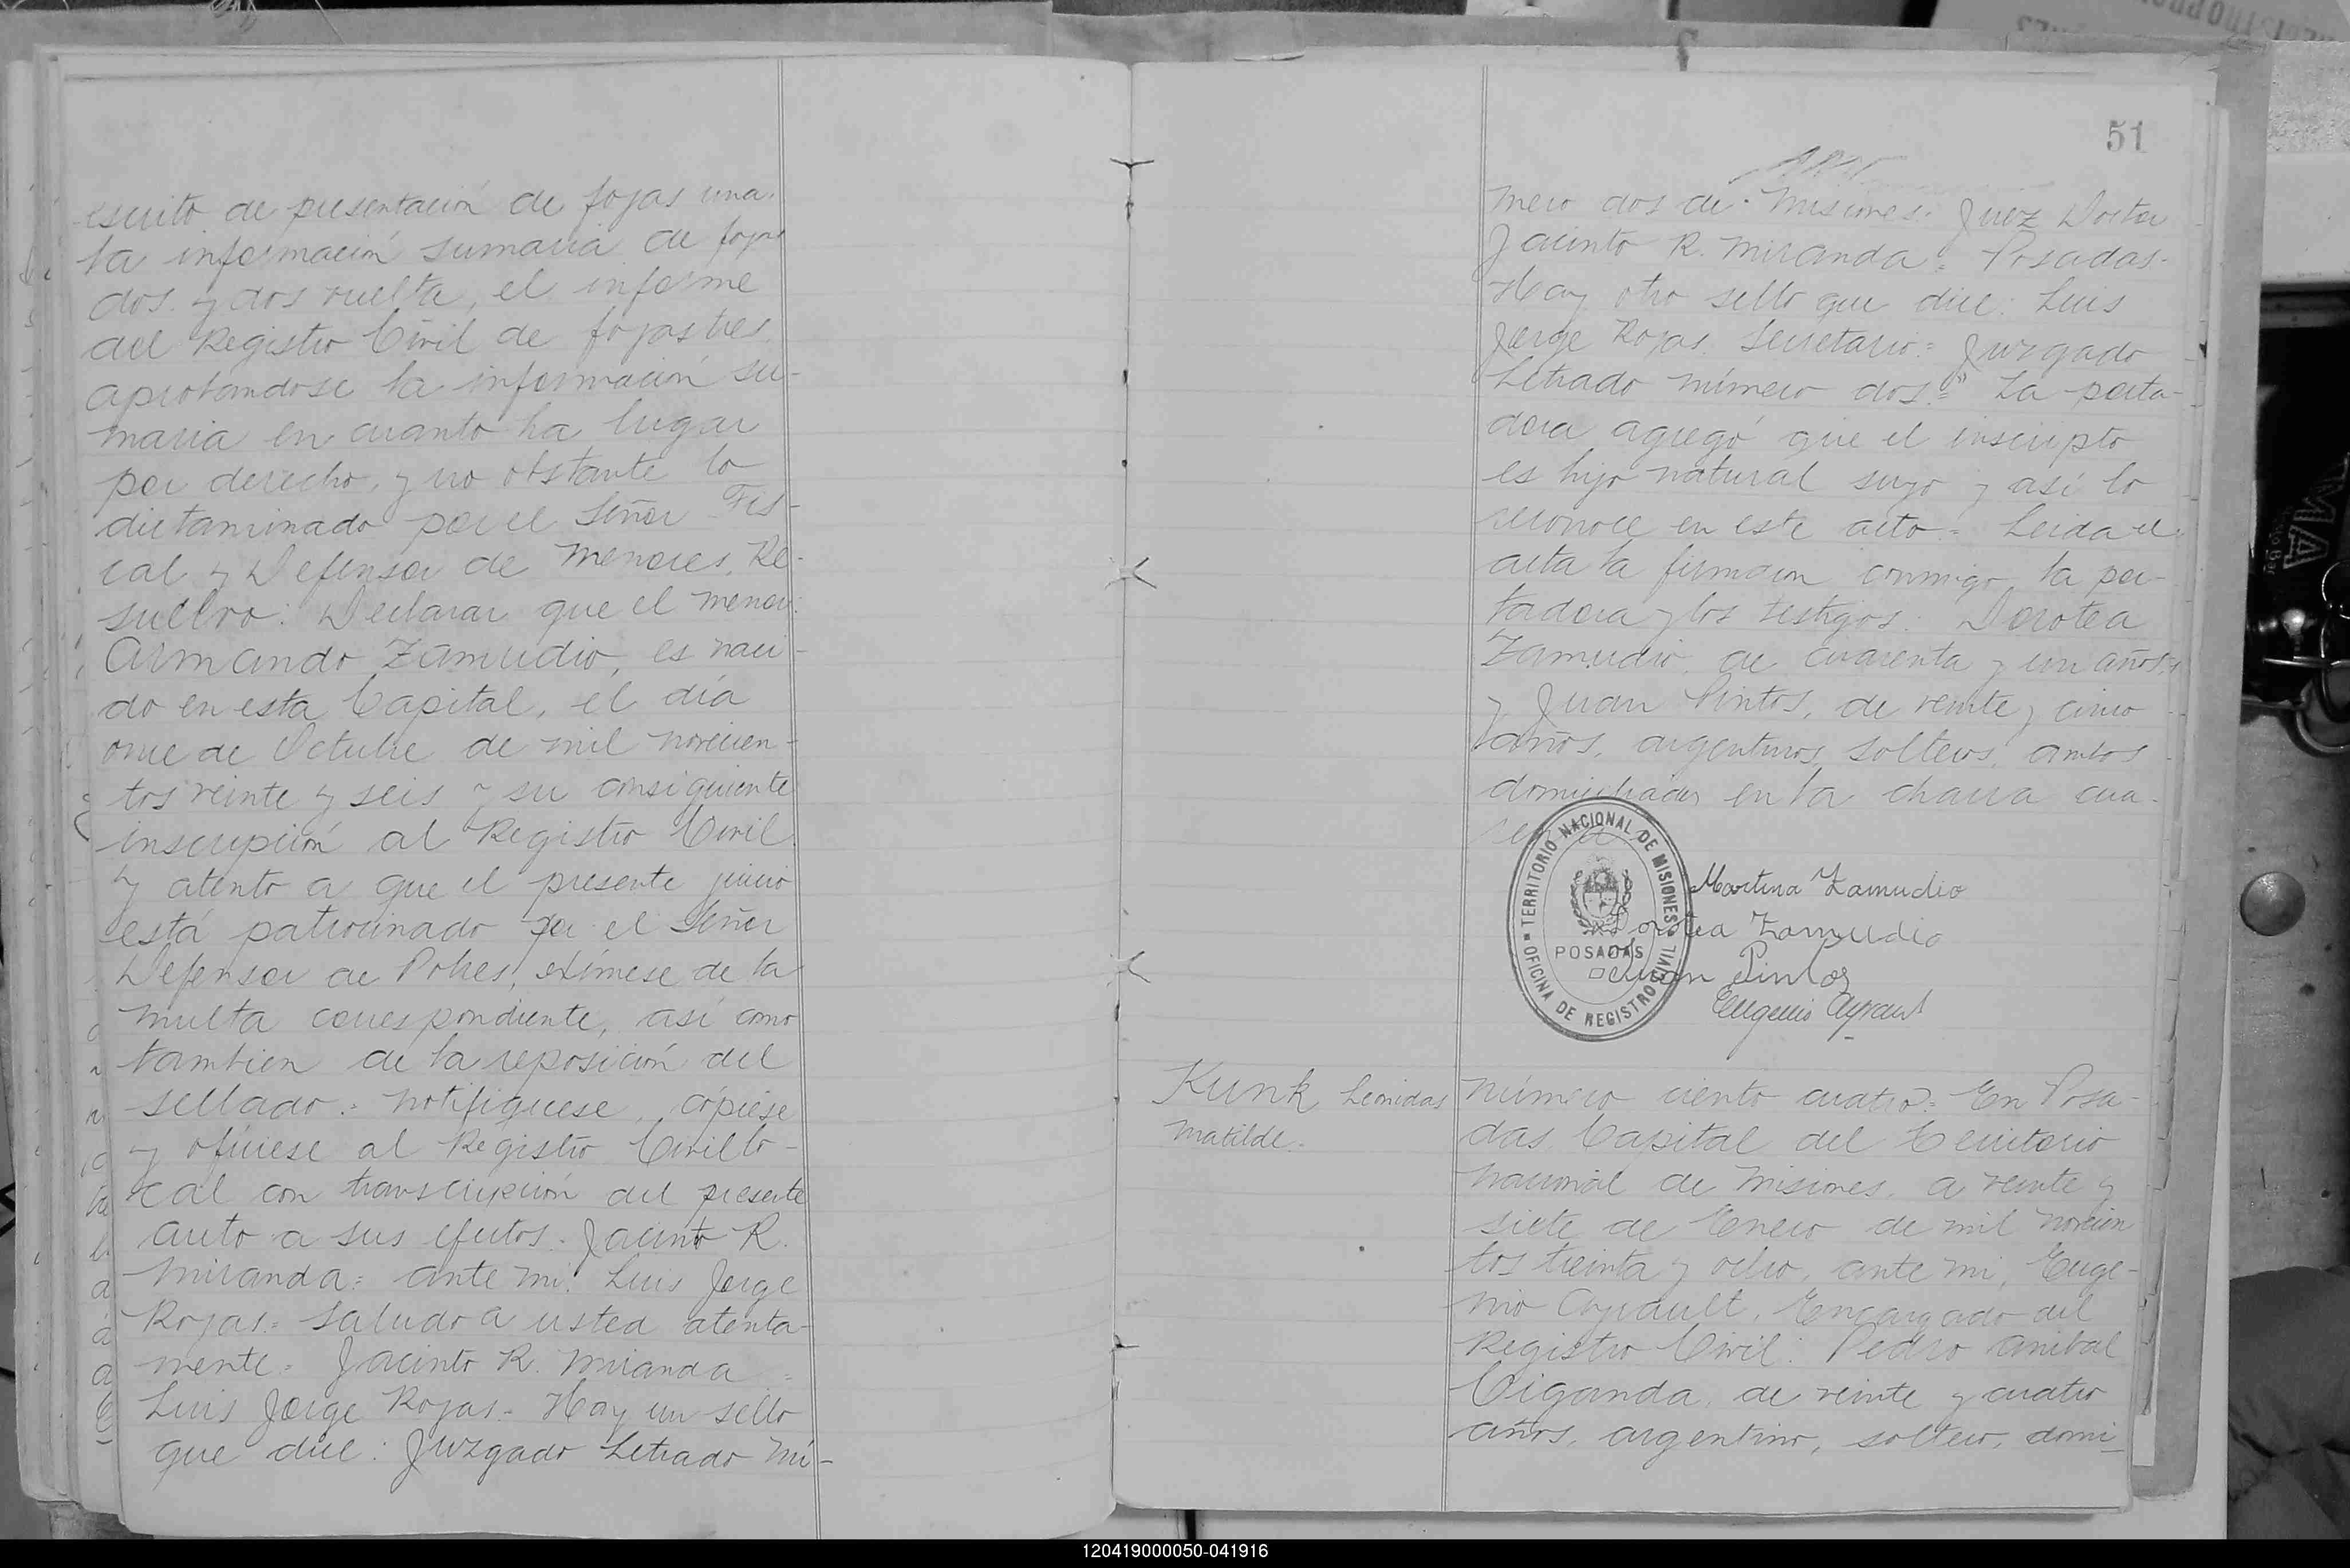 escrito de presentación de fojas una.
la información sumaria de fojas
dos y dos vuelta, el informe
del Registro Civil de fojas tres.
aprobandose la información su-
maria en cuanto ha lugar
por derecho, y no obstante lo
dictaminado por el Señor Fis-
cal y Defensor de Menores, Re-
suelvo: Declarar que el menor:
Armando Zamudio, es naci-
do en esta Capital, el día
once de Octubre de mil novecien-
tos veinte y seis y su consiguiente
inscripción al Registro Civil.
y atento a que el presente juicio
está patrocinado por el Señor
Defensor de Pobres, exímese de la
multa correspondiente, así como
tambien de la reposición del
sellado.= Notifíquese, cópiese
y ofíciese al Registro Civil lo-
cal con transcripción del presente
auto a sus efectos. Jacinto R.
Miranda= ante mi: Luis Jorge
Rojas.= Saludo a usted atenta-
mente.= Jacinto R. Miranda=
Luis Jorge Rojas.- Hay un sello
que dice: Juzgado Letrado Nú-
51
mero dos de Misiones. Juez Doctor
Jacinto R. Miranda= Posadas.
Hay otro sello que dice: Luis
Jorge Rojas. Secretario= Juzgado
Letrado número dos." La porta-
dora agregó que el inscripto
es hijo natural suyo y así lo
reconoce en este acto.= Leida el
acta la firmaron conmigo, la por-
tadora y los testigos: Dorotea
Zamudio, de cuarenta y un años,
y Juan Pintos, de veinte y cinco
años, argentinos, solteros, ambos
domiciliados en la chacra cua-
TERRITORIO NACIONAL DE MISIONES
POSADAS
OFICINA DE REGISTRO CIVIL
Martina Zamudio
Dorotea Zamudio
Juan Pintos
Eugenio Ayrault
Kunk Leonidas
Matilde.
Número ciento cuatro= En Posa-
das Capital del Territorio
Nacional de Misiones, a veinte y
siete de Enero de mil novecien
tos treinta y ocho, ante mi, Euge-
nio Ayrault, Encargado del
Registro Civil: Pedro Anibal
Viganda, de veinte y cuatro
años, argentino, soltero, domi-
120419000050-041916